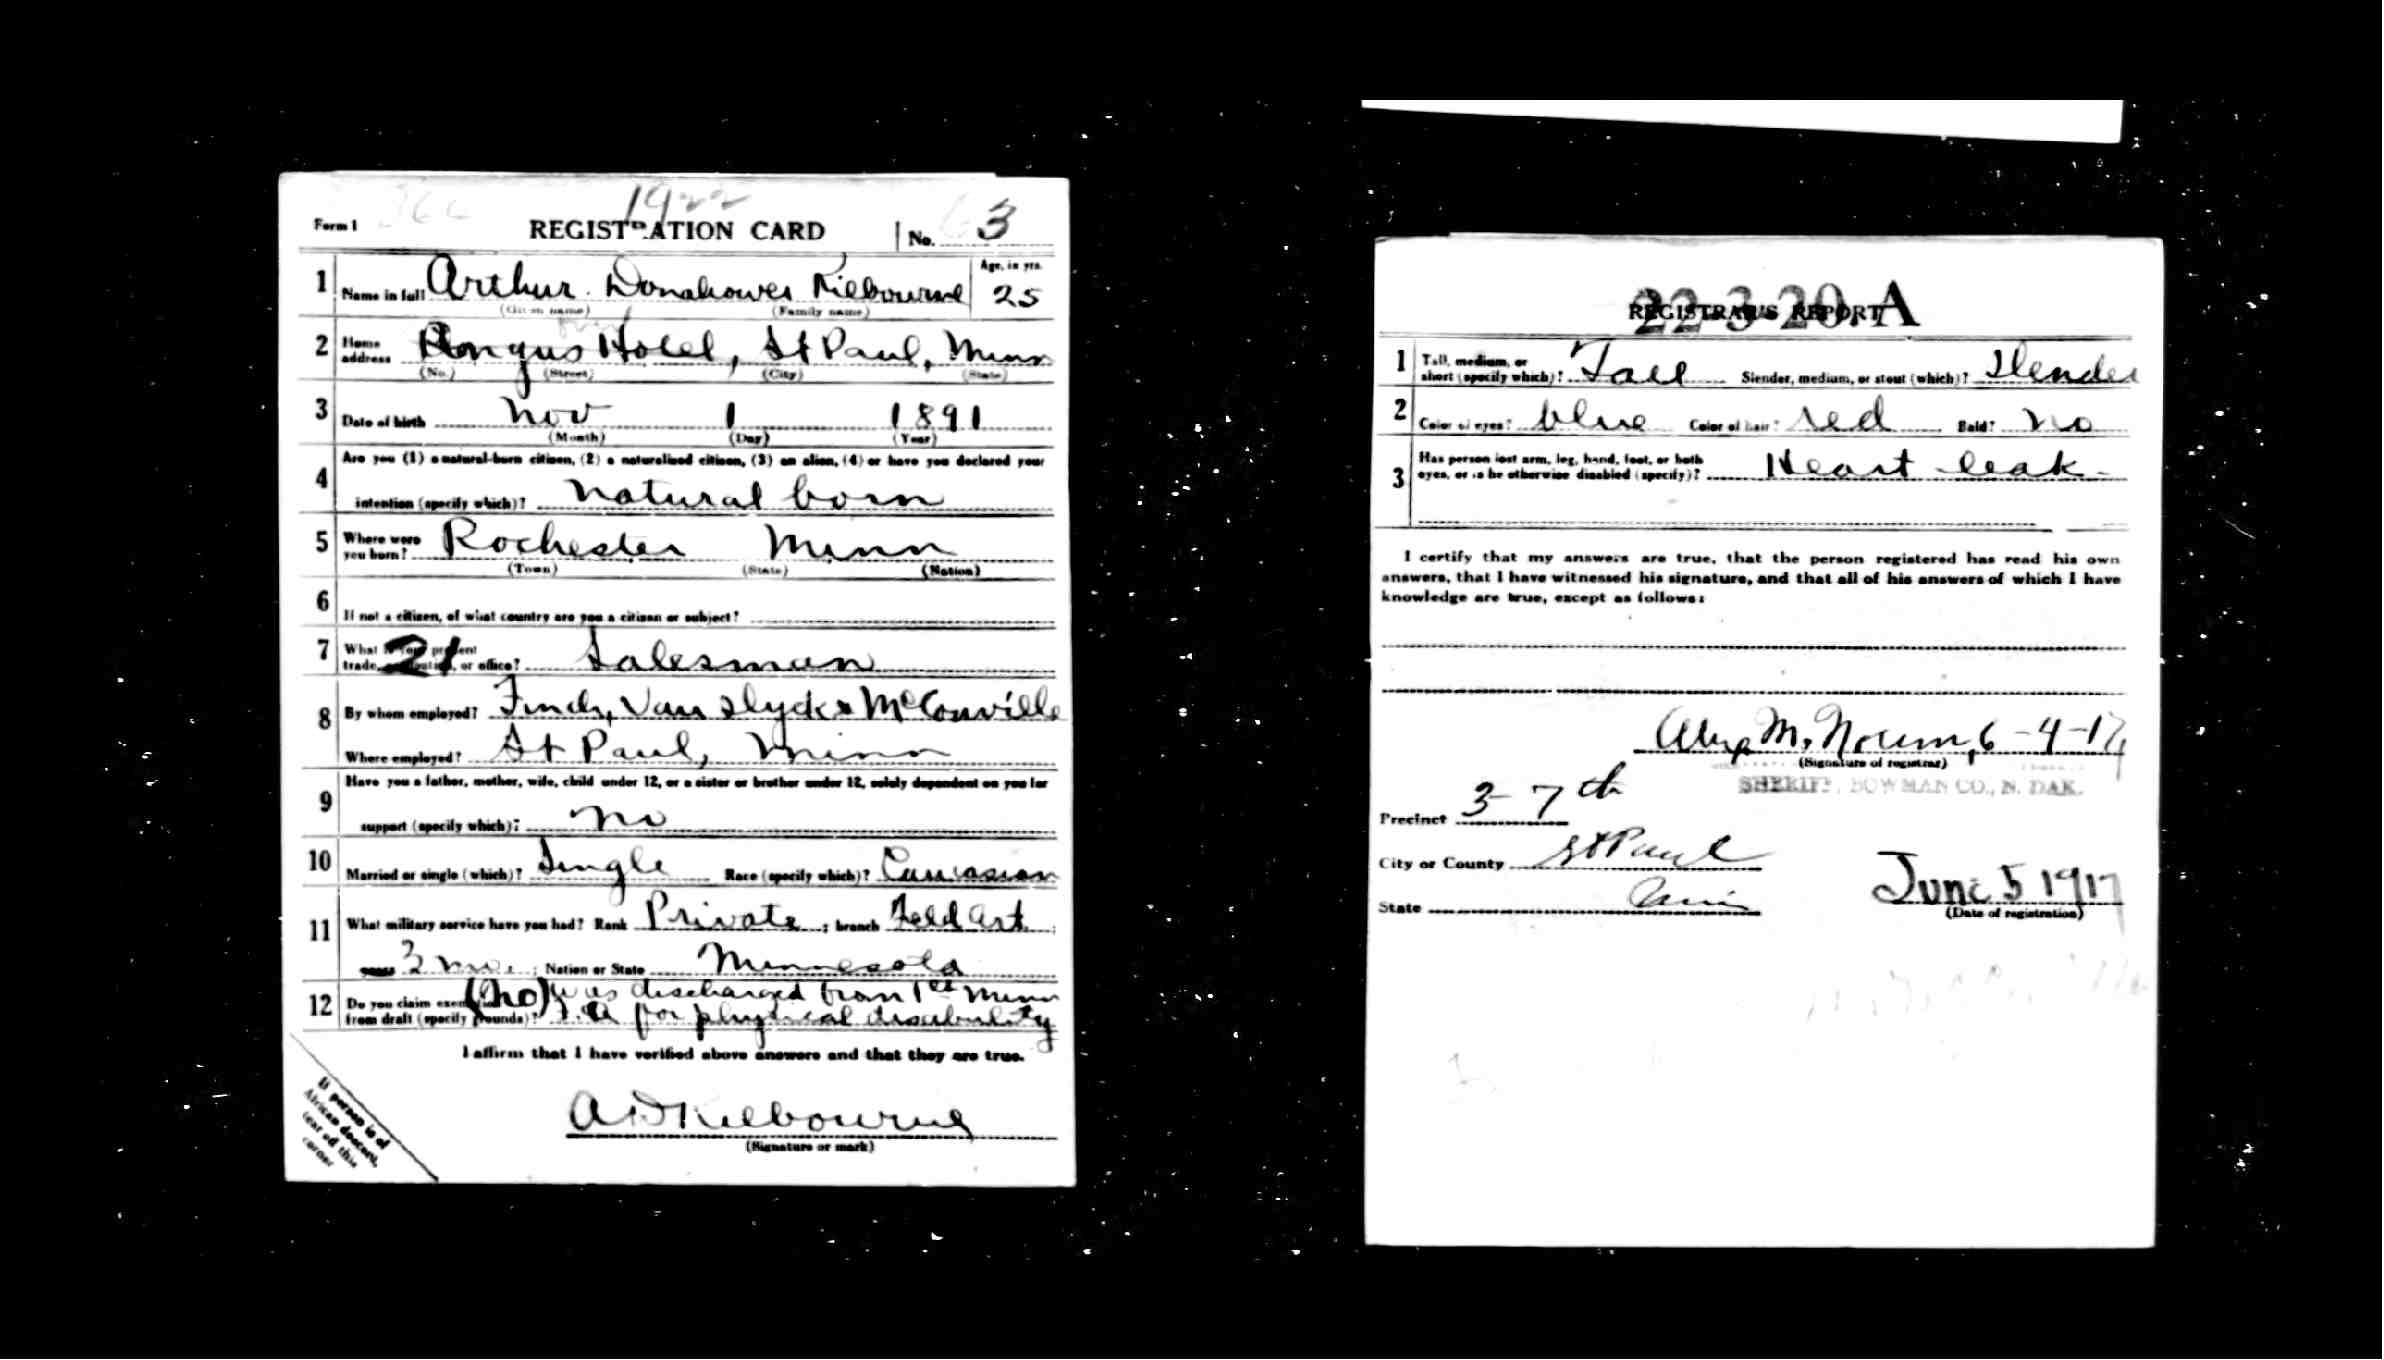 1922
Form 1 REGISTRATION CARD No. 3
1 Name in full Arthur Donahower Kilbourne Age, in yrs. 25
(Given name) (Family name)
2 Home address Angus Hotel, St Paul, Minn
(No.) (Street) (City) (State)
3 Date of birth Nov 1 1891
(Month) (Day) (Year)
4 Are you (1) a natural-born citizen, (2) a naturalized citizen, (3) an alien, (4) or have you declared your
intention (specify which)? natural born
5 Where were you born? Rochester Minn
(Town) (State) (Nation)
6 If not a citizen, of what country are you a citizen or subject?
7 What is your present trade, occupation, or office? 21 Salesman
8 By whom employed? Finch, Van Slyck & McConville
Where employed? St Paul, Minn
9 Have you a father, mother, wife, child under 12, or a sister or brother under 12, solely dependent on you for
support (specify which)? no
10 Married or single (which)? Single Race (specify which)? Caucasian
11 What military service have you had? Rank Private ; branch Feld Art ;
years 3 mo. ; Nation or State Minnesota
12 Do you claim exemption (no) was discharged from 1st Minn
from draft (specify grounds)? F.A for physical disability
I affirm that I have verified above answers and that they are true.
A D Kilbourne
(Signature or mark)
If person is of
African descent,
tear off this
corner
22-3-20. A
REGISTRAR'S REPORT
1 Tall, medium, or short (specify which)? Tall Slender, medium, or stout (which)? Slender
2 Color of eyes? blue Color of hair? red Bald? no
3 Has person lost arm, leg, hand, foot, or both
eyes, or is he otherwise disabled (specify)? Heart leak
I certify that my answers are true, that the person registered has read his own
answers, that I have witnessed his signature, and that all of his answers of which I have
knowledge are true, except as follows:
M. 6-4-17
(Signature of registrar)
SHERIFF, BOWMAN CO., N. DAK.
Precinct 3-7th
City or County St Paul
State June 5 1917
(Date of registration)